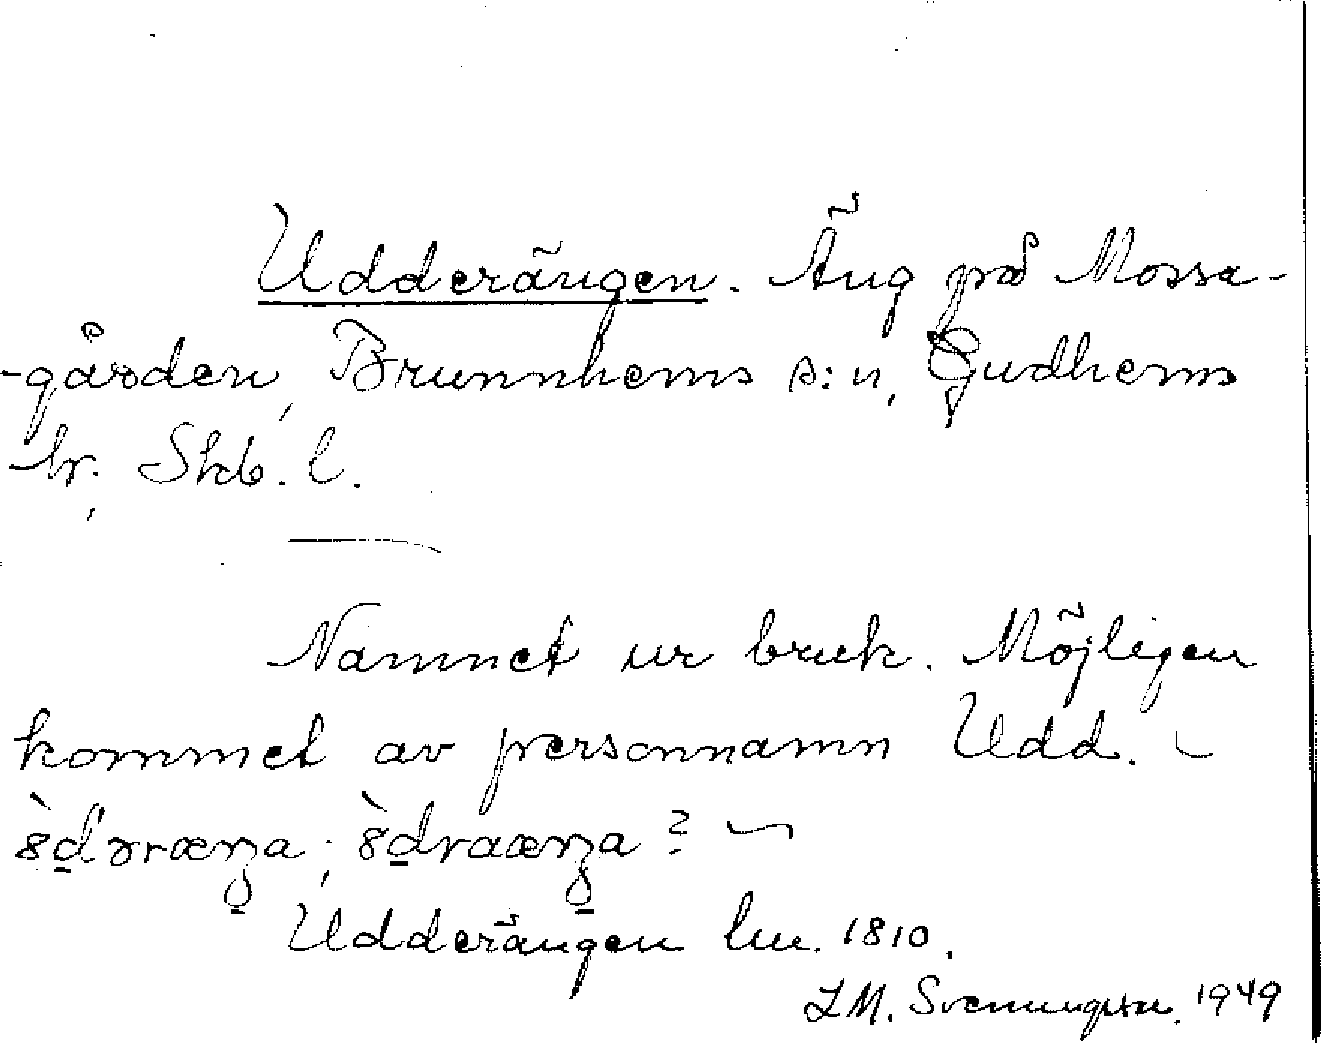 Udderängen. Äng på Mossa-
-gården, Brunnhems s:n, Gudhems
hr, Skb. l.
Namnet ur bruk. Möjligen
kommet av personnamn Udd. –
Udderängen lm. 1810.
L.M. Svenungsson. 1949